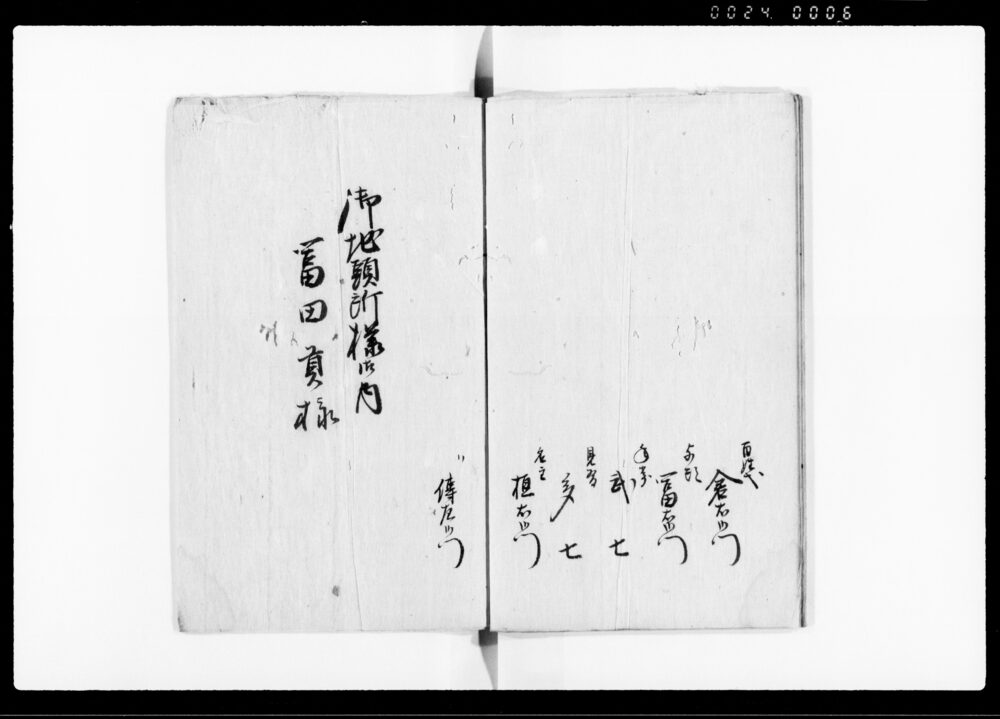 0024 0006
百姓代
倉右衛門
与頭
冨右衛門
年番
武七
見習
多七
名主
植右衛門
〃
傳左衛門
御地頭所様御内
冨田貢様